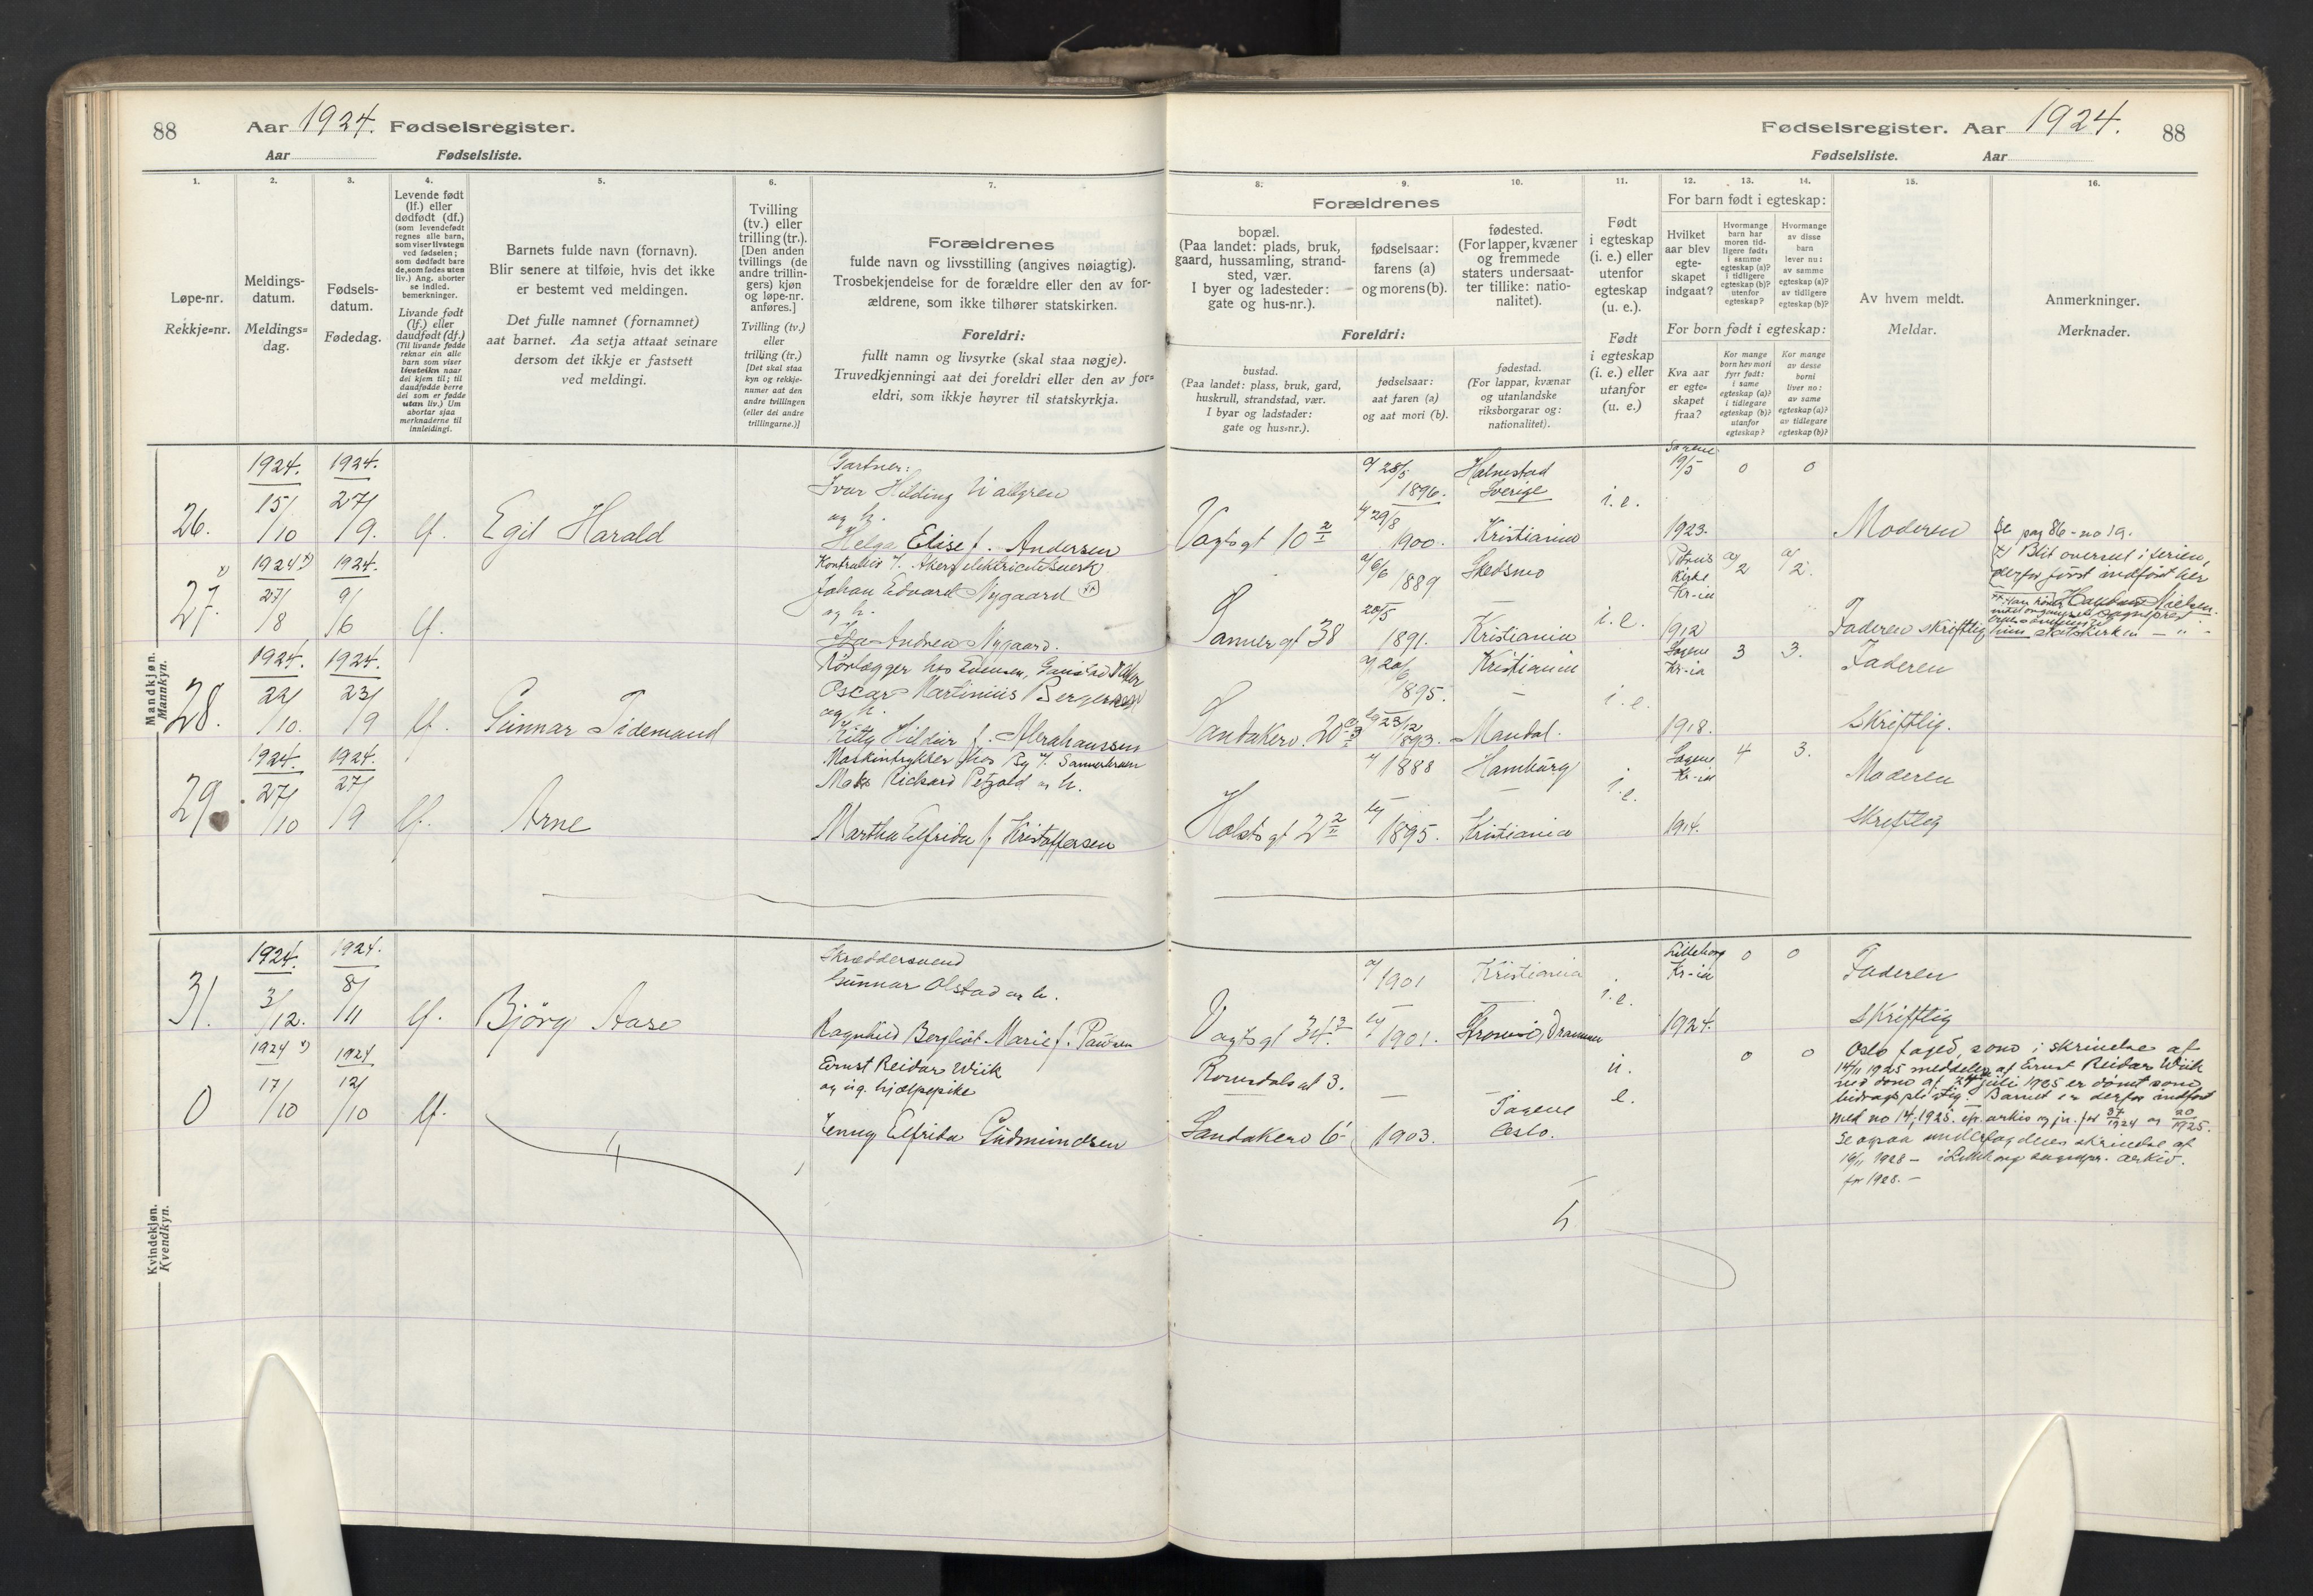 88
Aar 1924. Fødselsregister.
Aar Fødselsliste.
Fødselsregister. Aar 1924.
88
Fødselsliste. Aar
1.
2.
3.
4.
5.
6.
7.
Løpe-nr.
Rekkje=nr.
Meldings-
datum.
Meldings=
dag.
Fødsels-
datum.
Fødedag.
Levende født
(lf.) eller
dødfødt (df.)
(som levendefødt
regnes alle barn,
som viser livstegn
ved fødselen;
som dødfødt bare
de, som fødes uten
liv.) Ang. aborter
se indled.
bemerkninger.
Livande født
(lf.) eller
daudfødt (df.)
(Til livande fødde
reknar ein alle
barn som viser
livsteikn naar
dei kjem til; til
daudfødde berre
dei som er fødde
utan liv.) Um
abortar sjaa
merknaderne til
innleidingi.
Barnets fulde navn (fornavn).
Blir senere at tilføie, hvis det ikke
er bestemt ved meldingen.
Det fulle namnet (fornamnet)
aat barnet. Aa setja attaat seinare
dersom det ikkje er fastsett
ved meldingi.
Tvilling
(tv.) eller
trilling (tr.).
[Den anden
tvillings (de
andre trillin-
gers) kjøn
og løpe-nr.
anføres.]
Tvilling (tv.)
eller
trilling (tr.)
[Det skal staa
kyn og rekkje-
numer aat den
andre tvillingen
(eller dei andre
trillingarne.)]
Forældrenes
fulde navn og livsstilling (angives nøiagtig).
Trosbekjendelse for de forældre eller den av for-
ældrene, som ikke tilhører statskirken.
Foreldri:
fullt namn og livsyrke (skal staa nøgje).
Truvedkjenningi aat dei foreldri eller den av for=
eldri, som ikkje høyrer til statskyrkja.
8.
9.
10.
11.
12.
13.
14.
15.
16.
Forældrenes
bopæl.
(Paa landet: plads, bruk,
gaard, hussamling, strand-
sted, vær.
I byer og ladesteder:
gate og hus-nr.).
fødselsaar:
farens (a)
og morens (b).
fødested.
(For lapper, kvæner
og fremmede
staters undersaat-
ter tillike: natio-
nalitet).
Foreldri:
bustad.
(Paa landet: plass, bruk, gard,
huskrull, strandstad, vær.
I byar og ladstader:
gate og hus=nr.).
fødselsaar:
aat faren (a)
og aat mori (b).
fødestad.
(For lappar, kvænar
og utanlandske
riksborgarar og:
nationalitet).
Født
i egteskap
(i. e.) eller
utenfor
egteskap
(u. e.).
Født
i egteskap
(i. e.) eller
utanfor
(u. e.)
For barn født i egteskap:
Hvilket
aar blev
egte-
skapet
indgaat?
Hvormange
barn har
moren tid-
ligere født:
i samme
egteskap (a)?
i tidligere
egteskap (b)?
utenfor
egteskap?
Hvormange
av disse
barn
lever nu:
av samme
egteskap (a)?
av tidligere
egteskap (b)?
For born født i egteskap:
Kva aar
er egte=
skapet
fraa?
Kor mange
born hev mori
fyrr født:
i same
egteskap (a)?
i tidlegare
egteskap (b)?
utanfor
egteskap?
Kor mange
av desse
borni
liver no:
av same
egteskap (a)?
av tidlegare
egteskap (b)?
Av hvem meldt.
Meldar.
Anmerkninger.
Merknader.
Mandkjøn.
Mannkyn.
26.
1924.
15/
/10
1924.
27/
/9.
lf.
Egil Harald
Gartner:
Ivar Hilding Wallgren
og h.
Helga Elise f. Andersen
Vogtsgt 10 2/I
a/ 28/5
1896.
b/ 29/8
1900.
Halmstad
Sverige
Kristiania
i.e.
Sagene
19/5
1923.
0
0
Moderen
Se pag 86 - no 19.
x)
27.
1924 x)
27/
/8
1924.
9/
/6
lf.
Kontrollør v. Akers elektricitetsverk
Johan Edvard Nygaard xx
og h.
Andrea Nygaard.
Sannergt 38
a/ 6/6
1889.
20/5
1891.
Skedsmo
Kristiania
i.e.
Petrus
kirke
Kr-ia
1912
a/ 2
a/ 2.
Faderen skriftlig
x) Blit overset i serien,
derfor først indført her
statskirken
28.
1924.
22/
/10.
1924.
23/
/9
lf.
Gunnar Tidemand
Rørlægger hos
Oscar Martinius
og h.
Kitty Hildur f. Abrahamsen
Sandakerv. 20
a/ 20/6
1895.
b/ 23/12
1893.
Kristiania
Mandal.
i.e.
Sagene
Kr-ia
1918.
3
3.
Faderen
Skriftlig.
29
1924.
27/
/10
1924.
27/
/9
lf.
Arne
Maskintrykker hos
Max Rickard Petzold og h.
Martha Elfrida f. Kristoffersen
Holstsgt 2 2/II
a/ 1888
b/ 1895.
Hamburg
Kristiania
i.e.
Sagene
Kr-ia
1914.
4
3.
Moderen
Skriftlig
Kvindekjøn.
Kvendkyn.
31.
1924.
3/
/12.
1924.
8/
/11
lf.
Bjørg Aase
Skræddersvend
Gunnar Olstad og h.
Ragnhild Bergliot Marie f. Paulsen
Vogtsgt 34 3
a/ 1901
b/ 1901.
Kristiania
Strømsø, Drammen
i.e.
Lilleborg
Kr-ia
1924.
0
0
Faderen
Skriftlig
0
1924 x)
17/
/10
1924
12/
/10
lf.
Ernst Reidar Wiik
og ug. hjælpepike
Jenny Elfrida Gudmundsen
Romsdalsgt 3.
Sandakerv 6
1903.
Sagene
Oslo.
u.
e.
0
0
Oslo foged, som i skrivelse af
14/11 1925 meddeler at Ernst Reidar Wiik
ved dom af 24 juli 1925 er dømt som
bidragspligtig. Barnet er derfor indført
med no 14, 1925. cfr. arkiv og jr. for 37/1924 og 20/1925.
Se ogsaa underfogdens skrivelse af
16/11 1928 - i Lilleborg sognepr. arkiv.
for 1928. -